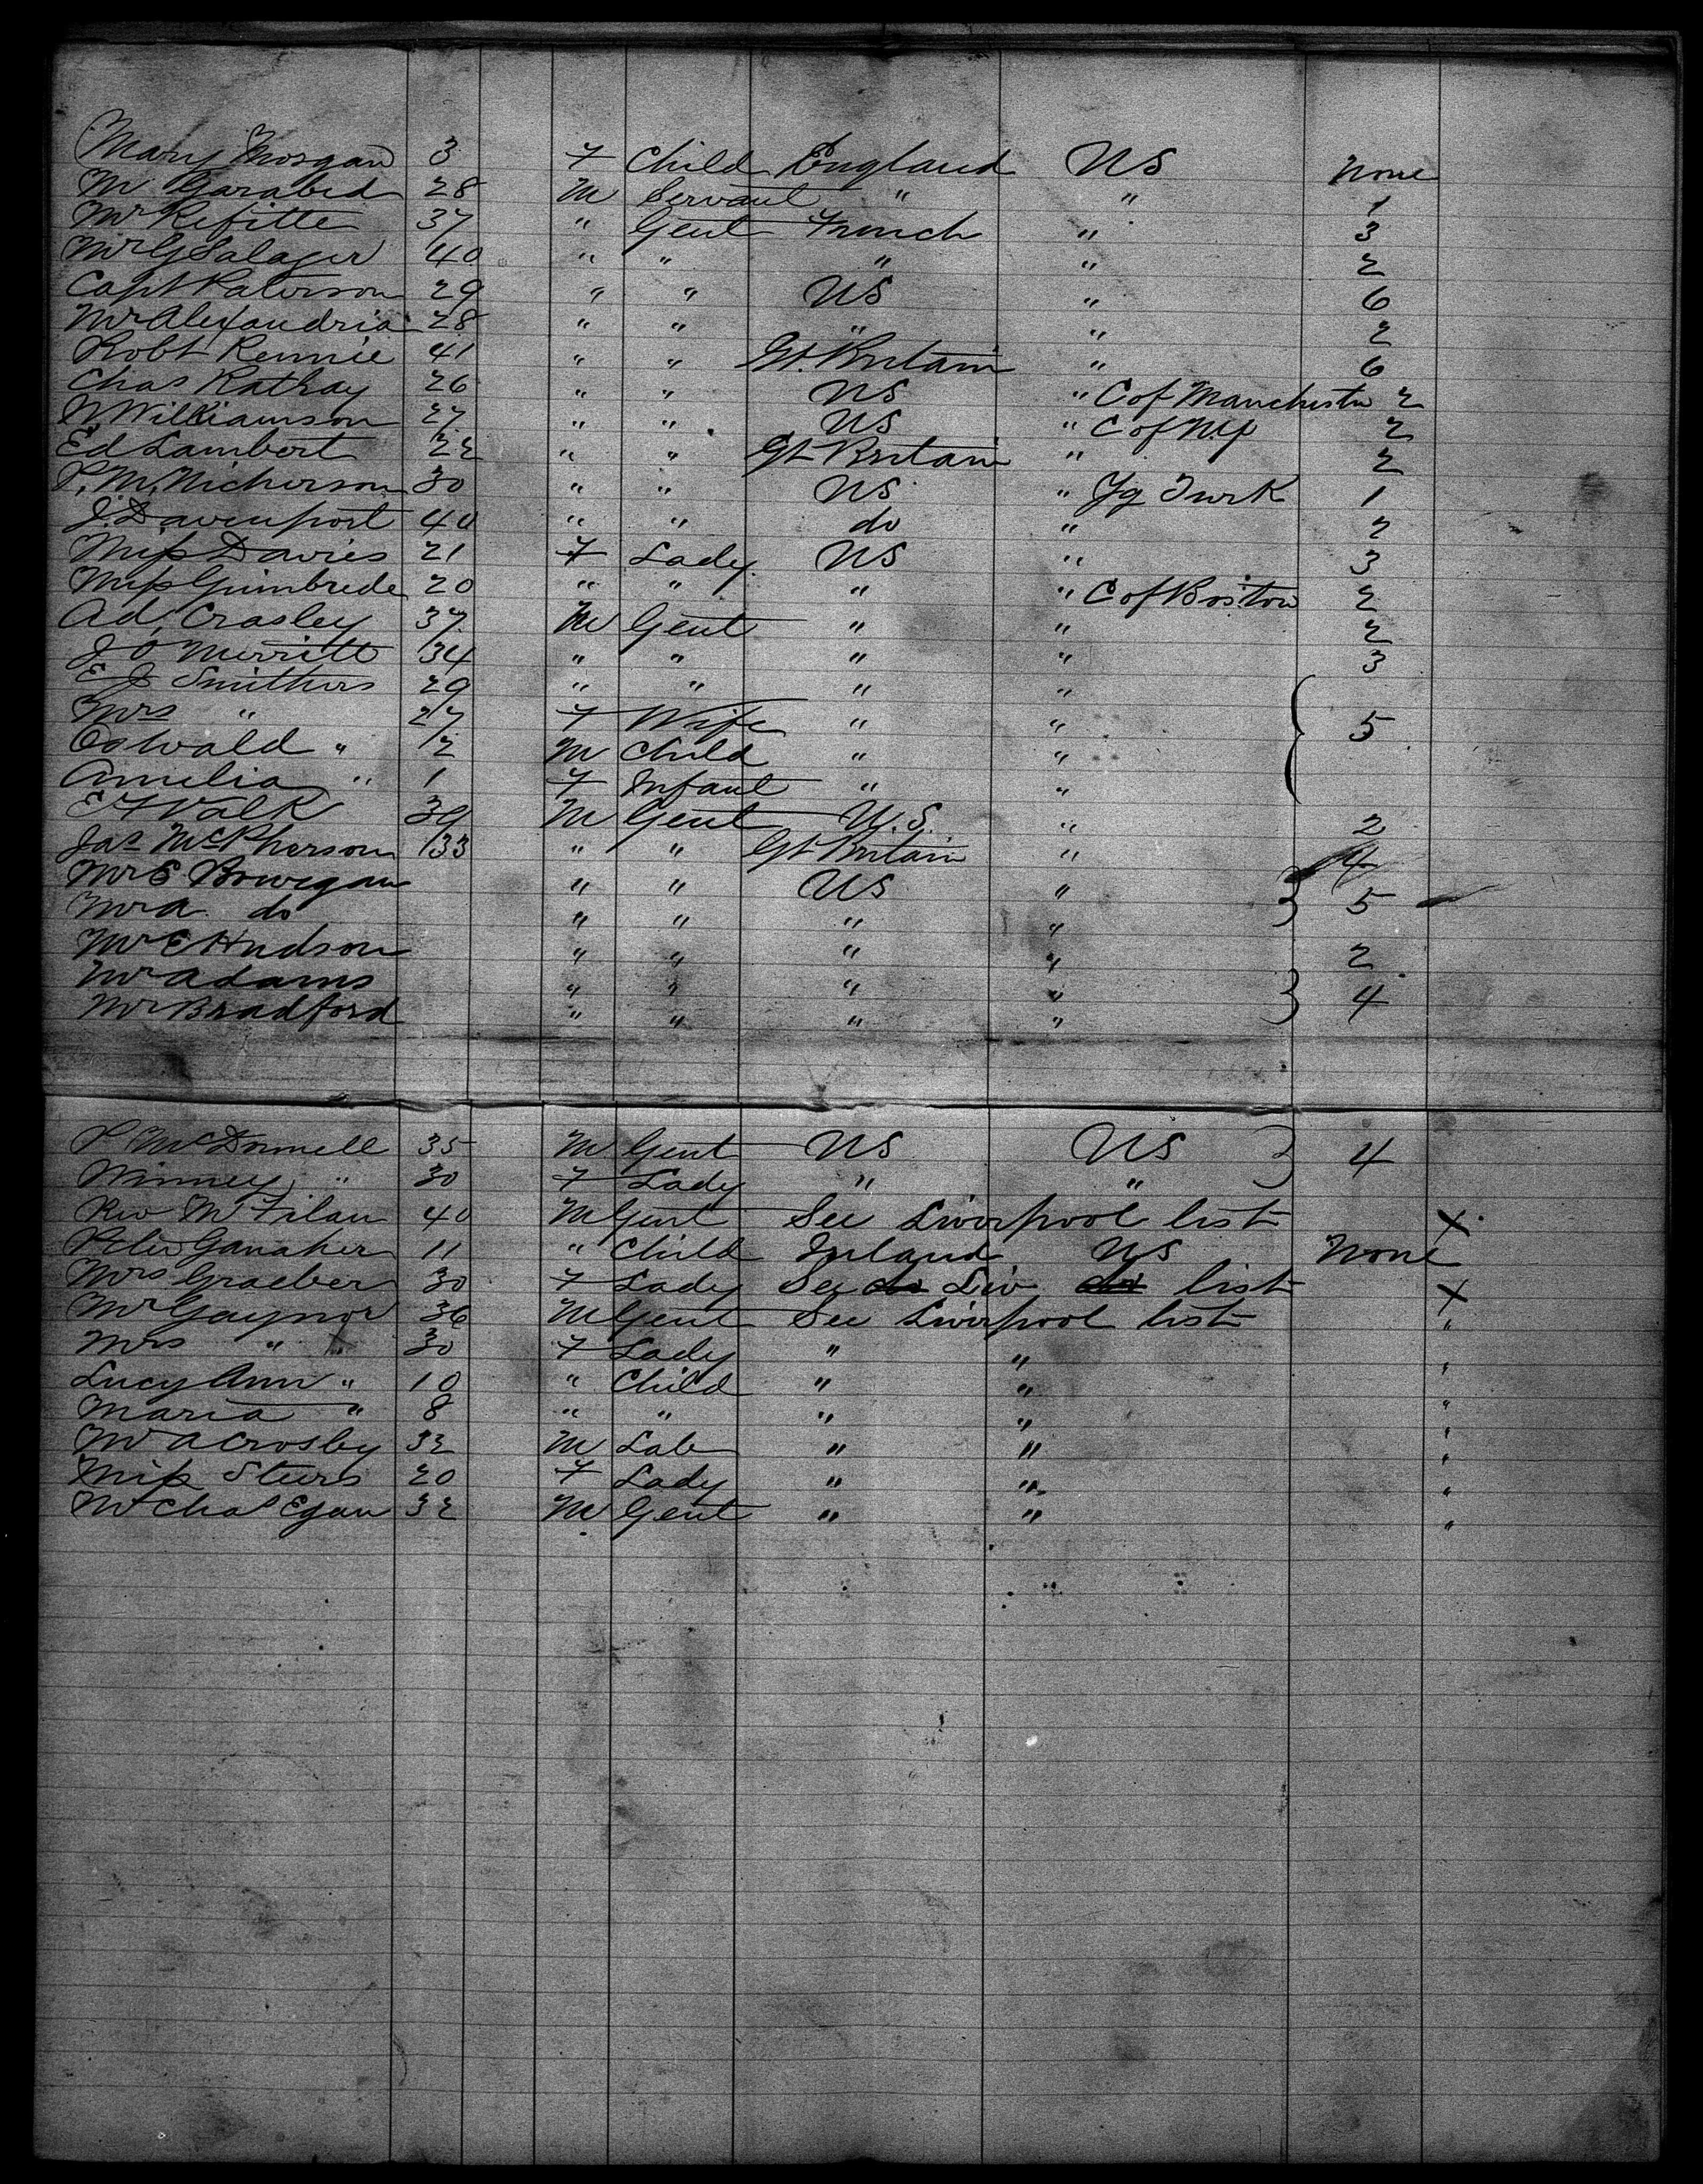 Mary Morgan 3 F Child England US None
M Garabed 28 M Servant " " 1
Mr Refitte 37 " Gent French " 3
Mr G Salager 40 " " " " 2
Capt Paterson 29 " " US " 6
Mr Alexandria 28 " " " " 2
Robt Rennie 41 " " Gt. Britain " 6
Chas Rathay 26 " " US " C of Manchester 2
Williamson 27 " " US " C of 2
Ed Lambert 22 " " Gt Britain " 2
M. Nickerson 30 " " US " Yg Turk 1
J. Davenport 40 " " do " 2
Miss Davies 21 F Lady US " 3
Miss Gimbrede 20 " " " " C of Boston 2
Ad. Crasley 37 M Gent " " 2
J O Merritt 34 " " " " 3
E J Smithers 29 " " " "
Mrs " 27 F Wife " " 5
Oswald " 2 M Child " "
Amelia " 1 F Infant " "
E F Valk 39 M Gent U.S. " 2
Jas McPherson 33 " " Gt Britain " 4
Mr S " " US " 5
Mr A. do " " " "
Mr E Hudson " " " " 2
Mr Adams " " " " 4
Mr Bradford " " " "
McDonnell 35 M Gent US US 4
Winney " 30 F Lady " "
Rev M Filan 40 M Gent See Liverpool list X
Peter Ganaher 11 " Child Ireland US None
Mrs Graeber 30 F Lady See do Liv do list X
Mr Gaynor 36 M Gent See Liverpool list "
Mrs " 30 F Lady " " "
Lucy Ann " 10 " Child " " "
Maria " 8 " " " " "
Mr A Crosby 32 M Lab " " "
Miss 20 F Lady " " "
Mr Chas Egan 32 M Gent " " "